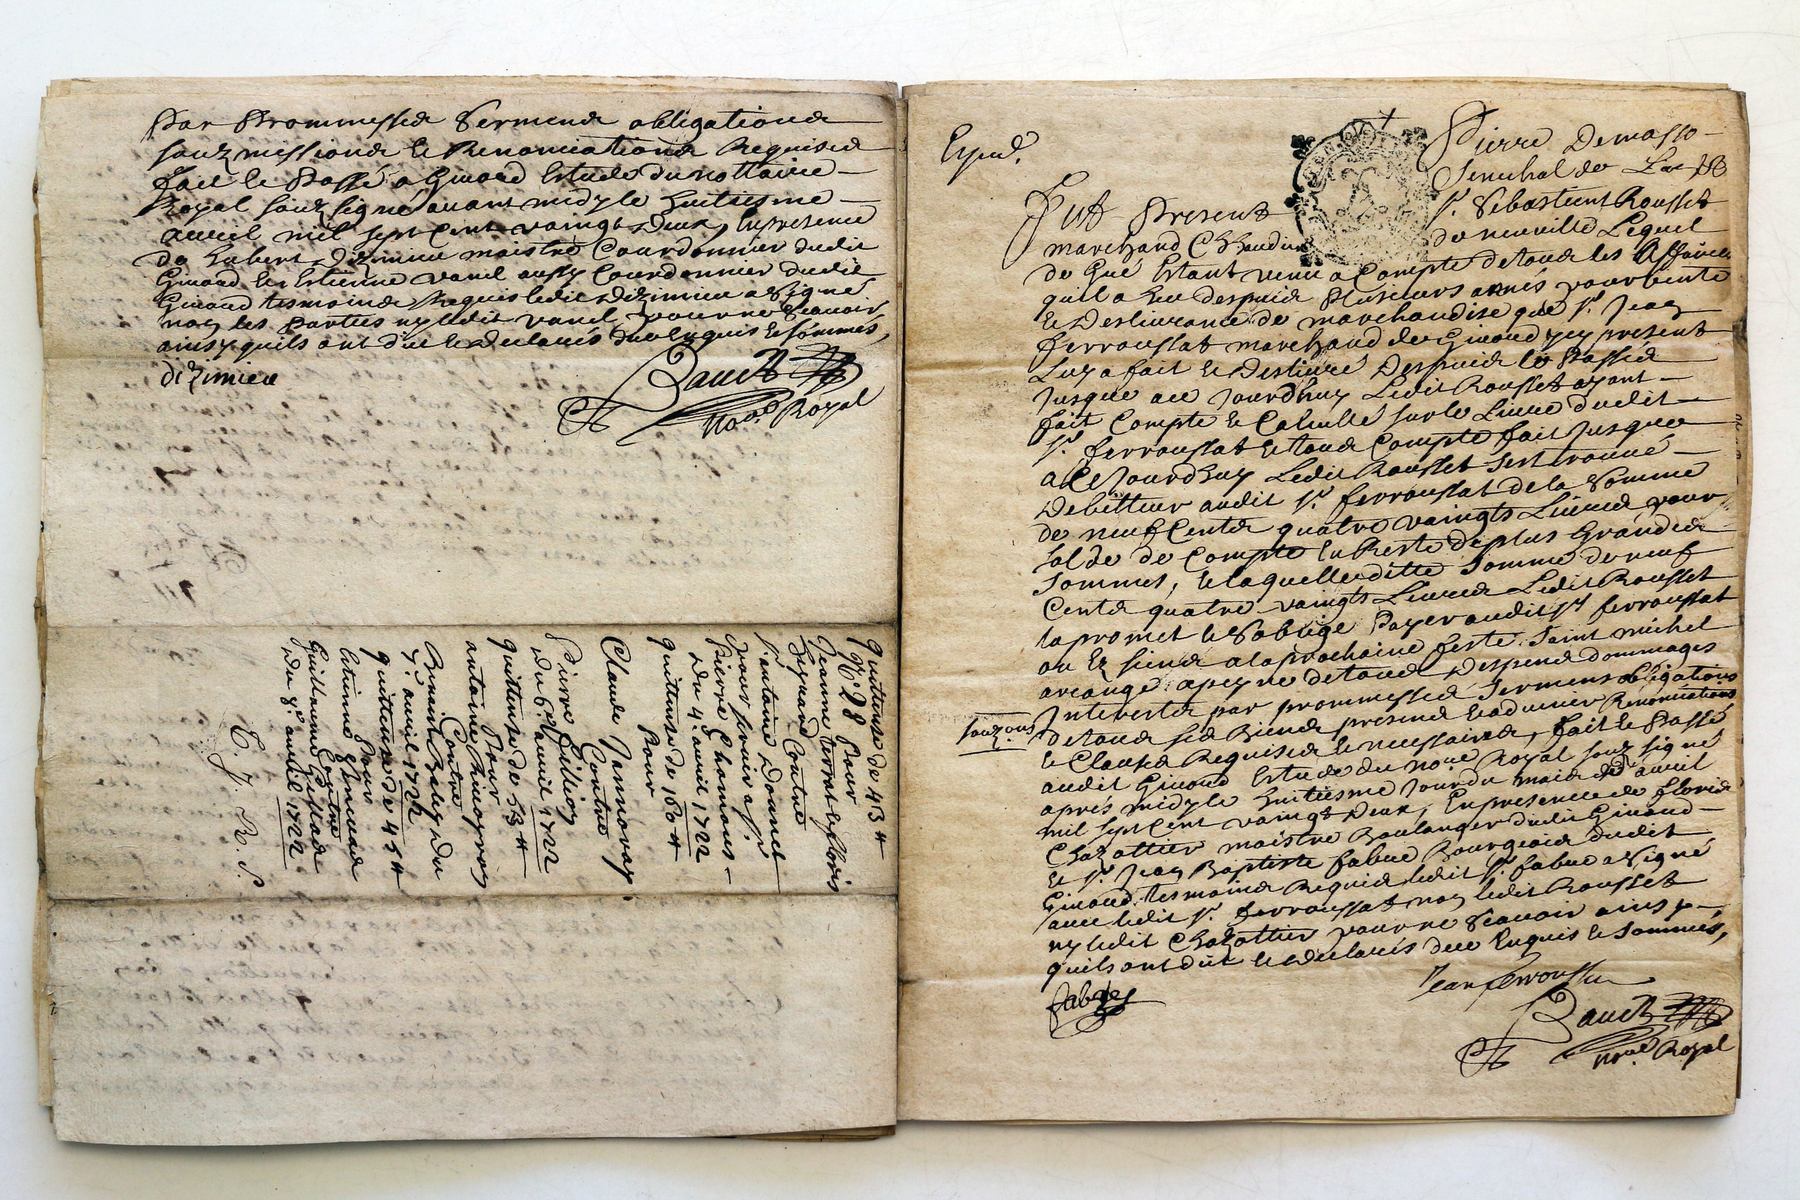 Par Prommesses Sermens obligations
souzmissions et Renonciations Requises
fait et Passé a Givord Estude du nottaire
Royal souz signé avant midy le huitiesme
avril mil sept cent vaingt deux, En presence
de hubert dizimieu maistre Courdonnier dudit
Givord et Estienne vanel aussy Courdonnier dudit
Givord tesmoins Requis ledit dizimieu a signé
non les parties ny ledit vanel pour ne scavoir
ainsy quils ont dit et declarés duez Enquis et sommés,
dizimieu
not. Royal
quittense de 43 ₶
N° 28 Pour
Jeanne
Contre
Pour
Pierre
Du 4e avril 1722
quittense de 160 ₶
Pour
Claude
Contre
Pierre
du 6e avril 1722
quittense de 53 ₶
Pour
antoine
Contre
Benoist du
7e avril 1722
quittense de 45 ₶
Pour
Estienne
Contre
Guillaume
du 8e avril 1722
Exped.
Pierre Demasso
Senechal de
Fut Present Sr. Sébastient Rousset
marchand de neuville Lequel
de Gré Estant venu a Compte de tous les Affaires
quil a heu despuis plusieurs annés pour vente
et Deslivrance de marchandise que Sr. Jean
ferroussat marchand de Givord icy present
Luy a fait et Deslivré Despuis le Passé
Jusque au Jourdhuy Ledit Rousset ayant
fait Compte et Calculle sur le Livre dudit
Sr. ferroussat et tous Compte fait Jusque
a Ce Jourdhuy Ledit Rousset sest trouvé
Debitteur audit Sr. ferroussat de la Somme
de neuf Cents quatre vaingts Livres pour
solde de Compte En Reste de plus Grandes
sommes, et laquelle ditte somme de neuf
Cents quatre vaingts Livres Ledit Rousset
la promet et soblige Payer audit Sr ferroussat
ou Ez siens a la prochaine feste Saint michel
arcange a peyne de tous Despens dommages
Interests par prommesses sermens obligations
de tous ses Biens presens et advenir Renonciations
et Clauses Requises et necessaires, fait et Passé
audit Givord Estude du nore Royal souz signé
apres midy le huitiesme Jour du mois de avril
mil sept Cent vaingt deux, En presence de floris
Chazottier maistre Boulanger dudit Givord
et Sr. Jean Baptiste fabre Bourgeois dudit
Givord tesmoins Requis ledit Sr. fabre a signé
avec ledit Sr. ferroussat non ledit Rousset
ny ledit Chazottier pour ne scavoir ainsy
quils ont dit et declarés duez Enquis et sommés,
Jean ferroussat
not. Royal